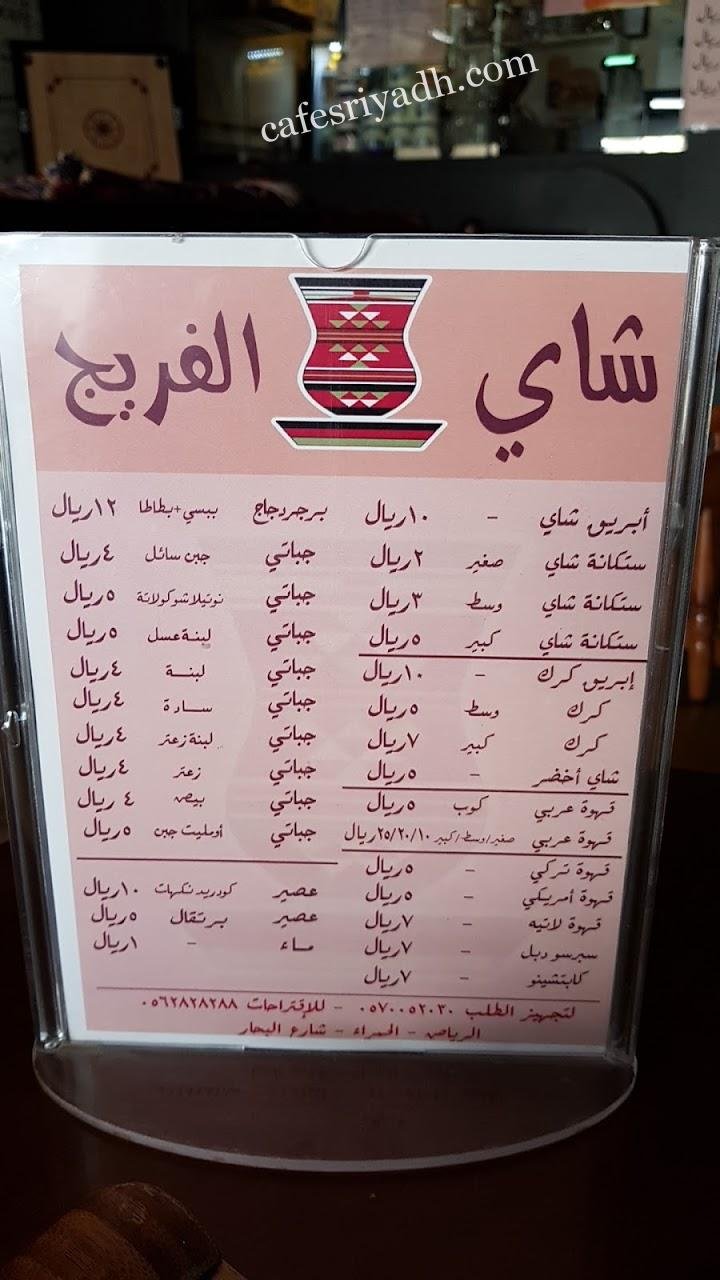 cafesriyadh.com
شاي الفريج
أبريق شاي - ١٠ريال
ستكانة شاي صغير ٢ريال
ستكانة شاي وسط ٣ريال
ستكانة شاي كبير ٥ريال
إبريق كرك - ١٠ريال
كرك وسط ٥ريال
كرك كبير ٧ريال
شاي أخضر - ٥ريال
قهوة عربي كوب ٥ريال
قهوة عربي صغير/وسط/كبير ٢٥/٢٠/١٠ريال
قهوة تركي - ٥ريال
قهوة أمريكي - ٥ريال
قهوة لاتيه - ٧ريال
سبرسو دبل - ٧ريال
كابتشينو - ٧ريال
برجردجاج ببسي+بطاطا ١٢ريال
جباتي جبن سائل ٤ريال
جباتي نوتيلاشوكولاتة ٥ريال
جباتي لبنةعسل ٥ريال
جباتي لبنة ٤ريال
جباتي سادة ٤ريال
جباتي لبنة زعتر ٤ريال
جباتي زعتر ٤ريال
جباتي بيض ٤ريال
جباتي أومليت جبن ٥ريال
عصير كودريد نكهات ١٠ريال
عصير برتقال ٥ريال
ماء - ١ريال
لتجهيز الطلب ٠٥٧٠٠٥٢٠٣٠ - للإقتراحات ٠٥٦٢٨٢٨٢٨٨
الرياض - الحمراء - شارع البحار